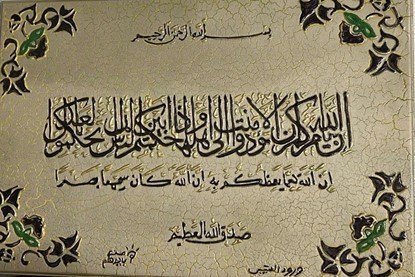 بسم الله الرحمن الرحيم
إن الله يأمركم أن تؤدوا الأمانات إلى أهلها وإذا حكمتم بين الناس أن تحكموا بالعدل
إن الله نعما يعظكم به إن الله كان سميعا بصيرا
صدق الله العظيم